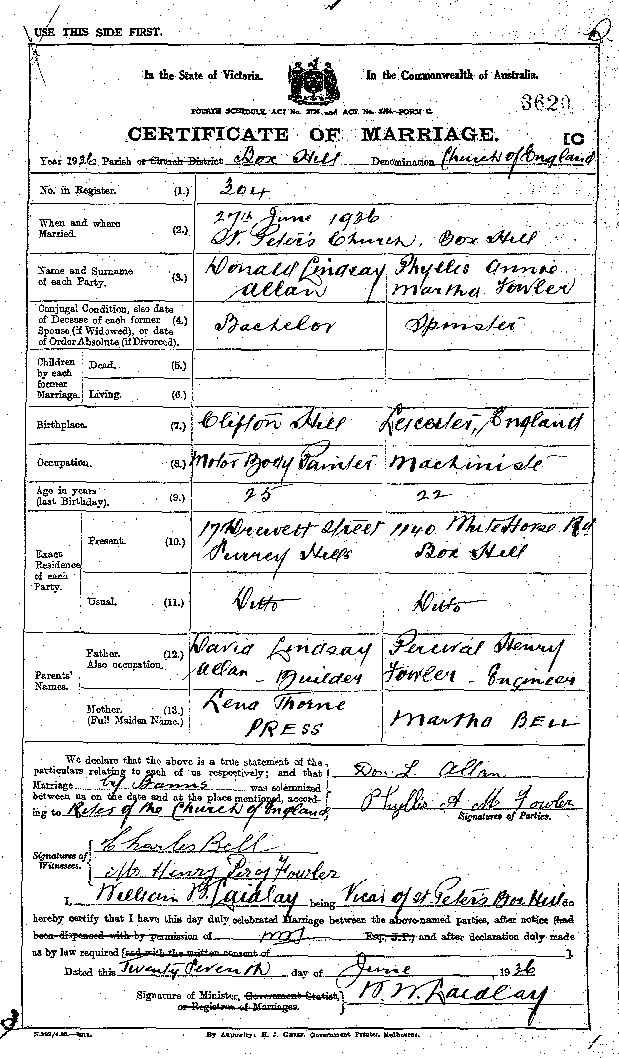 USE THIS SIDE FIRST.
In the State of Victoria. In the Commonwealth of Australia.
3620
FOURTH SCHEDULE, ACT No. and ACT No. FORM C.
CERTIFICATE OF MARRIAGE. [C
Year 1926 Parish or Church District Box Hill Denomination Church of England
No. in Register. (1.) 304
When and where Married. (2.) 27th June 1926
St. Peter's Church, Box Hill
Name and Surname of each Party. (3.) Donald Lindsay Allan Phyllis Annie Martha Fowler
Conjugal Condition, also date of Decease of each former Spouse (if Widowed), or date of Order Absolute (if Divorced). (4.) Bachelor Spinster
Children by each former Marriage. Dead. (5.)
Living. (6.)
Birthplace. (7.) Clifton Hill Leicester, England
Occupation. (8.) Motor Body Painter Machiniste
Age in years (last Birthday). (9.) 25 22
Exact Residence of each Party. Present. (10.) 17 Street Surrey Hills 1140 White Horse Rd Box Hill
Usual. (11.) Ditto Ditto
Parents' Names. Father. Also occupation. (12.) David Lindsay Allan - Builder Percival Henry Fowler - Engineer
Mother. (Full Maiden Name.) (13.) Lena Thorne PRESS Martha BELL
We declare that the above is a true statement of the
particulars relating to each of us respectively; and that
Marriage by Banns was solemnized
between us on the date and at the place mentioned, accord-
ing to Rites of the Church of England
Don. L. Allan
Phyllis A M Fowler
Signatures of Parties.
Signatures of Witnesses. Charles Bell
Mr. Henry Percy Fowler
I, William W. Laidlay being Vicar of St Peters Box Hill do
hereby certify that I have this day duly celebrated Marriage between the above-named parties, after notice (had
been dispensed with by permission of Esq., J.P.) and after declaration duly made
as by law required (and with the written consent of ).
Dated this Twenty Seventh day of June 1926
Signature of Minister, Government Statist, or Registrar of Marriages. W. W. Laidlay
By Authority: H. J. Green, Government Printer, Melbourne.